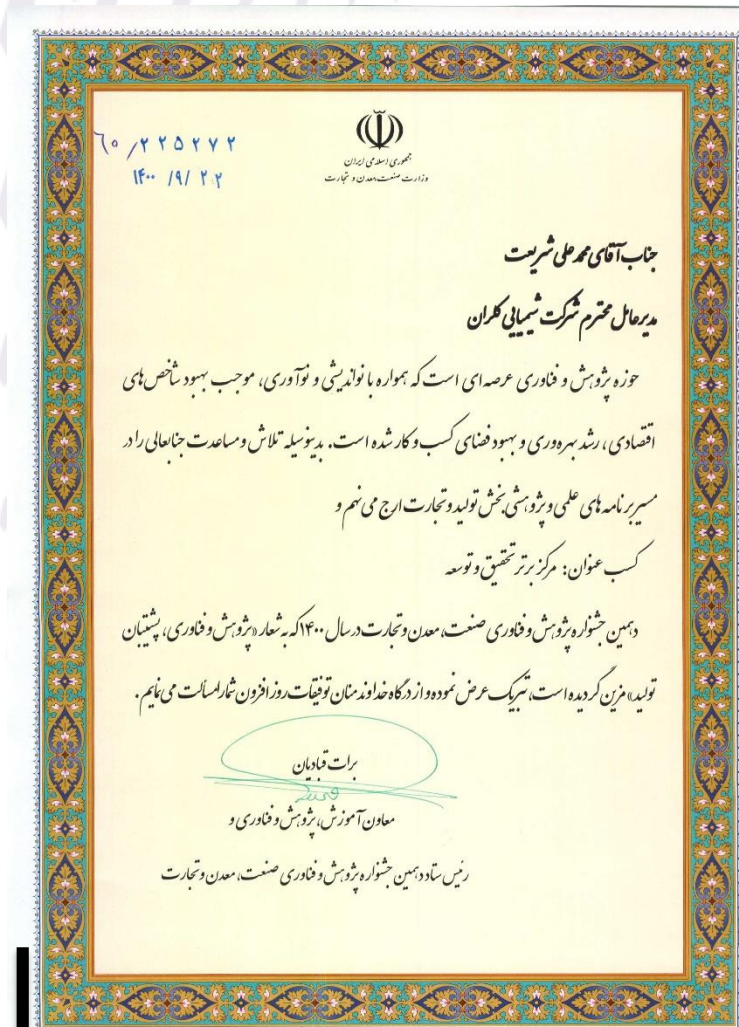 ۶۰/۲۲۵۲۷۲
۱۴۰۰/۹/۲۲
جمهوری اسلامی ایران
وزارت صنعت، معدن و تجارت
جناب آقای محمد علی شریعت
مدیرعامل محترم شرکت شیمیایی کلران
حوزه پژوهش و فناوری عرصه ای است که همواره با نواندیشی و نوآوری، موجب بهبود شاخص های
اقتصادی، رشد بهره وری و بهبود فضای کسب و کار شده است. بدینوسیله تلاش و مساعدت جنابعالی را در
مسیر برنامه های علمی و پژوهشی بخش تولید و تجارت ارج می نهم و
کسب عنوان: مرکز برتر تحقیق و توسعه
دهمین جشنواره پژوهش و فناوری صنعت، معدن و تجارت در سال ۱۴۰۰ که به شعار «پژوهش و فناوری، پشتیبان
تولید» مزین گردیده است، تبریک عرض نموده و از درگاه خداوند منان توفیقات روز افزون شما را مسألت می نمایم.
برات قبادیان
معاون آموزش، پژوهش و فناوری و
رئیس ستاد دهمین جشنواره پژوهش و فناوری صنعت، معدن و تجارت